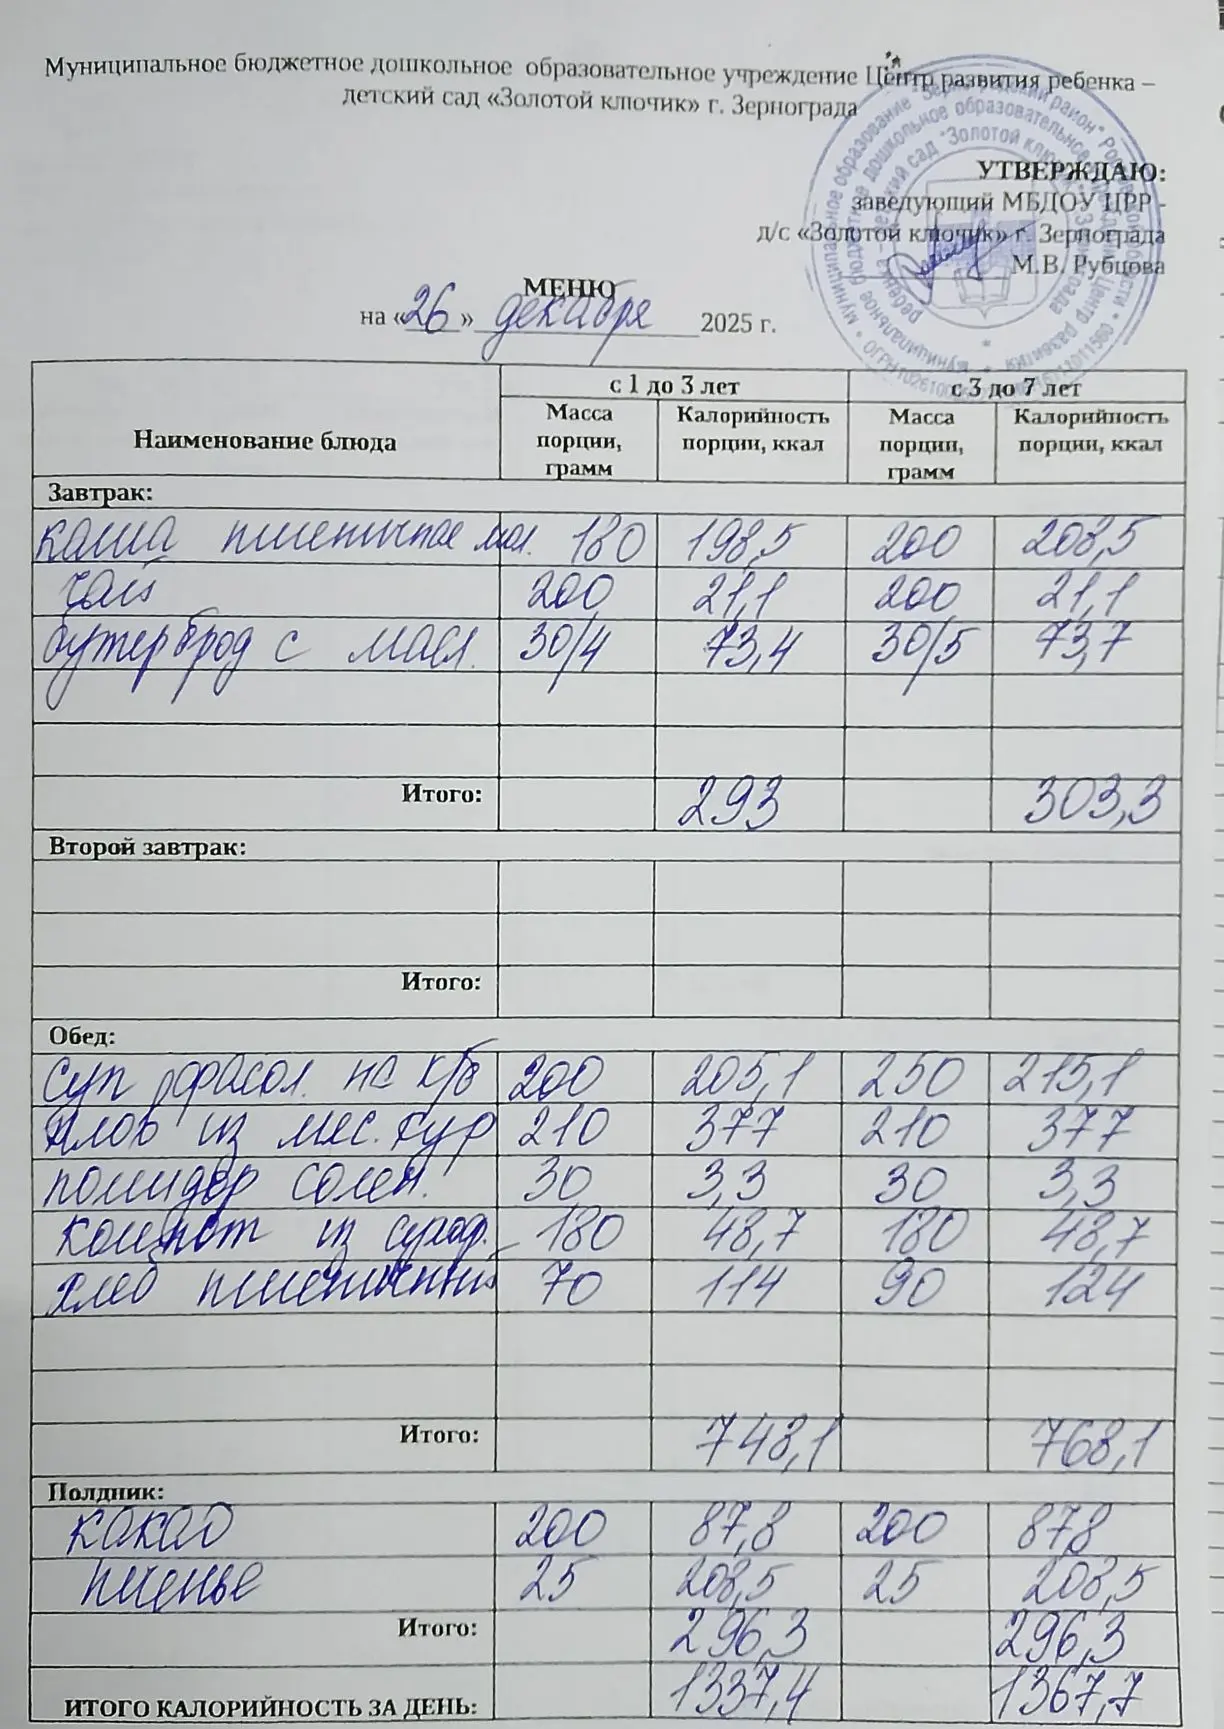 Муниципальное бюджетное дошкольное образовательное учреждение Центр развития ребенка –
детский сад «Золотой ключик» г. Зернограда
УТВЕРЖДАЮ:
заведующий МБДОУ ЦРР -
д/с «Золотой ключик» г. Зернограда
М.В. Рубцова
МЕНЮ
на «26» декабря 2025 г.
Наименование блюда
с 1 до 3 лет с 3 до 7 лет
Масса порции, грамм Калорийность порции, ккал Масса порции, грамм Калорийность порции, ккал
Завтрак:
каша пшеничная мол. 180 198,5 200 208,5
чай 200 21,1 200 21,1
бутерброд с масл. 30/4 73,4 30/5 73,7
Итого: 293 303,3
Второй завтрак:
Итого:
Обед:
суп фасол. на к/б 200 205,1 250 215,1
плов из мяс. кур 210 377 210 377
помидор солен. 30 3,3 30 3,3
компот из сухоф. 180 48,7 180 48,7
хлеб пшеничный 70 114 90 124
Итого: 748,1 768,1
Полдник:
какао 200 87,8 200 87,8
печенье 25 208,5 25 208,5
Итого: 296,3 296,3
ИТОГО КАЛОРИЙНОСТЬ ЗА ДЕНЬ: 1337,4 1367,7